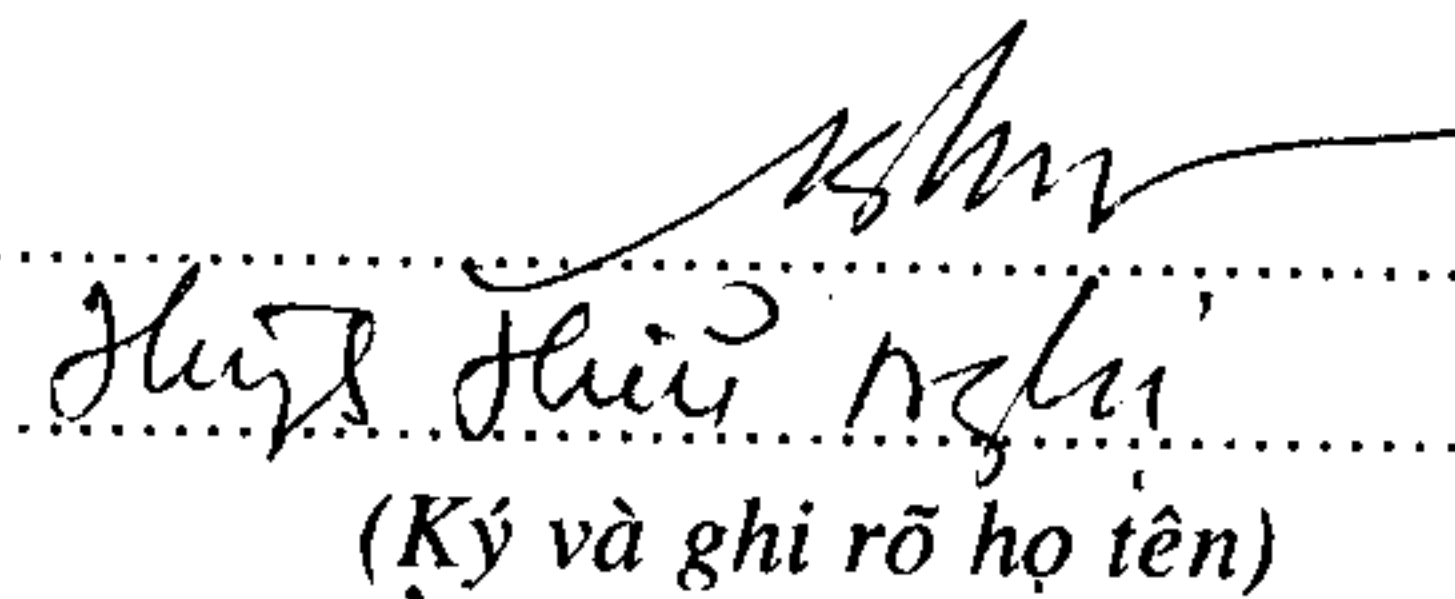 Huỳnh Hữu Nghị
(Ký và ghi rõ họ tên)